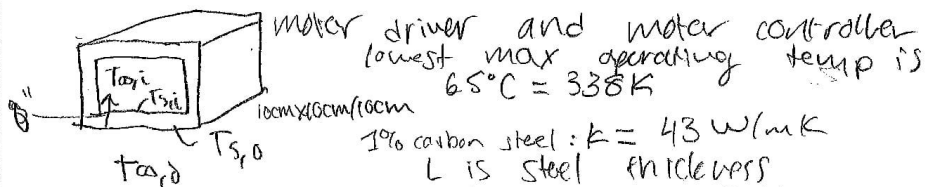 motor driver and motor controller
lowest max operating temp is
65°C = 338K
T∞,i
Ts,i
10cmx10cm/10cm
Ts,o
T∞,o
1% carbon steel : k = 43 W/mK
L is steel thickness